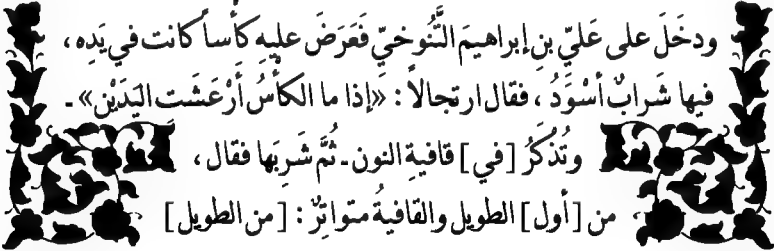 ودخَلَ على عَليّ بنِ إبراهيمَ التَّنُوخيّ فَعَرَضَ عليهِ كأْساً كانت في يَدِه ،
فيها شَرابٌ أسْوَدُ ، فقال ارتجالاً : «إذا ما الكأْسُ أرْعَشَتِ اليَدَيْنِ» ـ
وتُذكَرُ [في] قافيةِ النون ـ ثُمَّ شَرِبَها فقال ،
من [أول] الطويل والقافيةُ متواتِرٌ : [من الطويل]